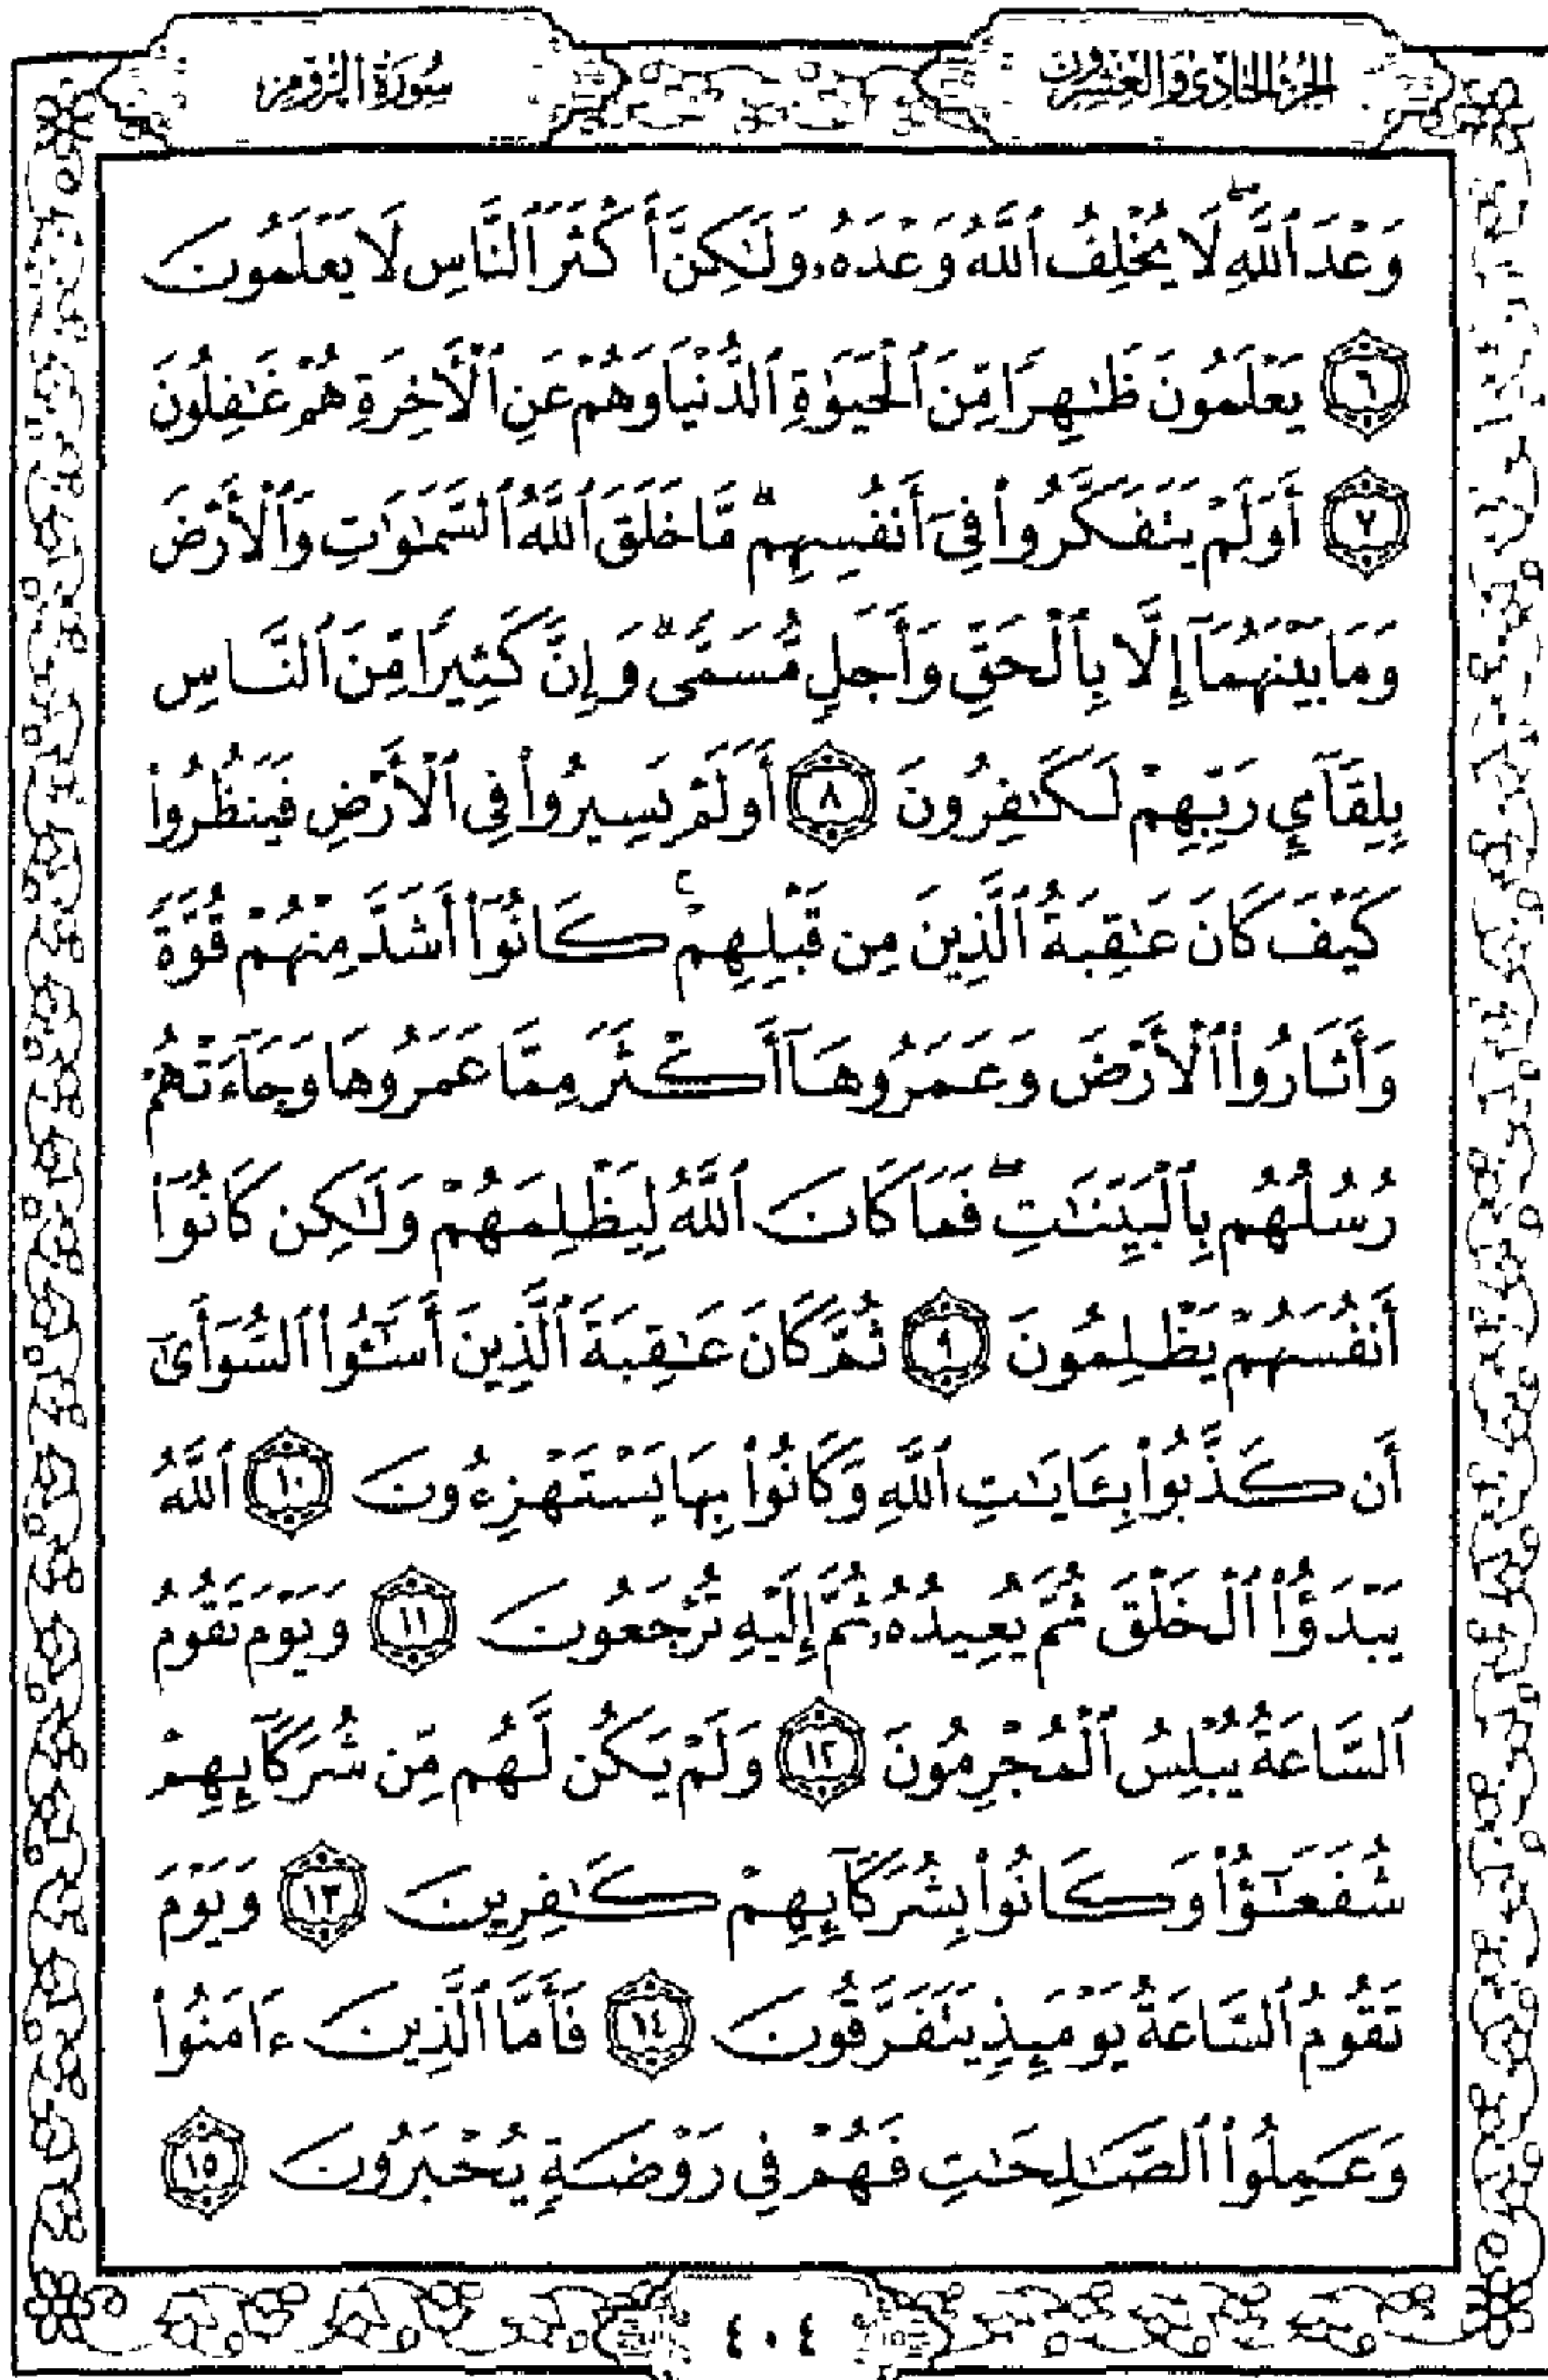 الجزء الحادي والعشرون
سورة الروم
وَعْدَ ٱللَّهِ ۖ لَا يُخْلِفُ ٱللَّهُ وَعْدَهُۥ وَلَٰكِنَّ أَكْثَرَ ٱلنَّاسِ لَا يَعْلَمُونَ
٦ يَعْلَمُونَ ظَٰهِرًا مِّنَ ٱلْحَيَوٰةِ ٱلدُّنْيَا وَهُمْ عَنِ ٱلْأَخِرَةِ هُمْ غَٰفِلُونَ
٧ أَوَلَمْ يَتَفَكَّرُوا۟ فِىٓ أَنفُسِهِم ۗ مَّا خَلَقَ ٱللَّهُ ٱلسَّمَٰوَٰتِ وَٱلْأَرْضَ
وَمَا بَيْنَهُمَآ إِلَّا بِٱلْحَقِّ وَأَجَلٍ مُّسَمًّى ۗ وَإِنَّ كَثِيرًا مِّنَ ٱلنَّاسِ
بِلِقَآيِٕ رَبِّهِمْ لَكَٰفِرُونَ ٨ أَوَلَمْ يَسِيرُوا۟ فِى ٱلْأَرْضِ فَيَنظُرُوا۟
كَيْفَ كَانَ عَٰقِبَةُ ٱلَّذِينَ مِن قَبْلِهِمْ ۚ كَانُوٓا۟ أَشَدَّ مِنْهُمْ قُوَّةً
وَأَثَارُوا۟ ٱلْأَرْضَ وَعَمَرُوهَآ أَكْثَرَ مِمَّا عَمَرُوهَا وَجَآءَتْهُمْ
رُسُلُهُم بِٱلْبَيِّنَٰتِ ۖ فَمَا كَانَ ٱللَّهُ لِيَظْلِمَهُمْ وَلَٰكِن كَانُوٓا۟
أَنفُسَهُمْ يَظْلِمُونَ ٩ ثُمَّ كَانَ عَٰقِبَةَ ٱلَّذِينَ أَسَٰٓـُٔوا۟ ٱلسُّوٓأَىٰٓ
أَن كَذَّبُوا۟ بِـَٔايَٰتِ ٱللَّهِ وَكَانُوا۟ بِهَا يَسْتَهْزِءُونَ ١٠ ٱللَّهُ
يَبْدَؤُا۟ ٱلْخَلْقَ ثُمَّ يُعِيدُهُۥ ثُمَّ إِلَيْهِ تُرْجَعُونَ ١١ وَيَوْمَ تَقُومُ
ٱلسَّاعَةُ يُبْلِسُ ٱلْمُجْرِمُونَ ١٢ وَلَمْ يَكُن لَّهُم مِّن شُرَكَآئِهِمْ
شُفَعَٰٓؤُا۟ وَكَانُوا۟ بِشُرَكَآئِهِمْ كَٰفِرِينَ ١٣ وَيَوْمَ
تَقُومُ ٱلسَّاعَةُ يَوْمَئِذٍ يَتَفَرَّقُونَ ١٤ فَأَمَّا ٱلَّذِينَ ءَامَنُوا۟
وَعَمِلُوا۟ ٱلصَّٰلِحَٰتِ فَهُمْ فِى رَوْضَةٍ يُحْبَرُونَ ١٥
٤٠٤